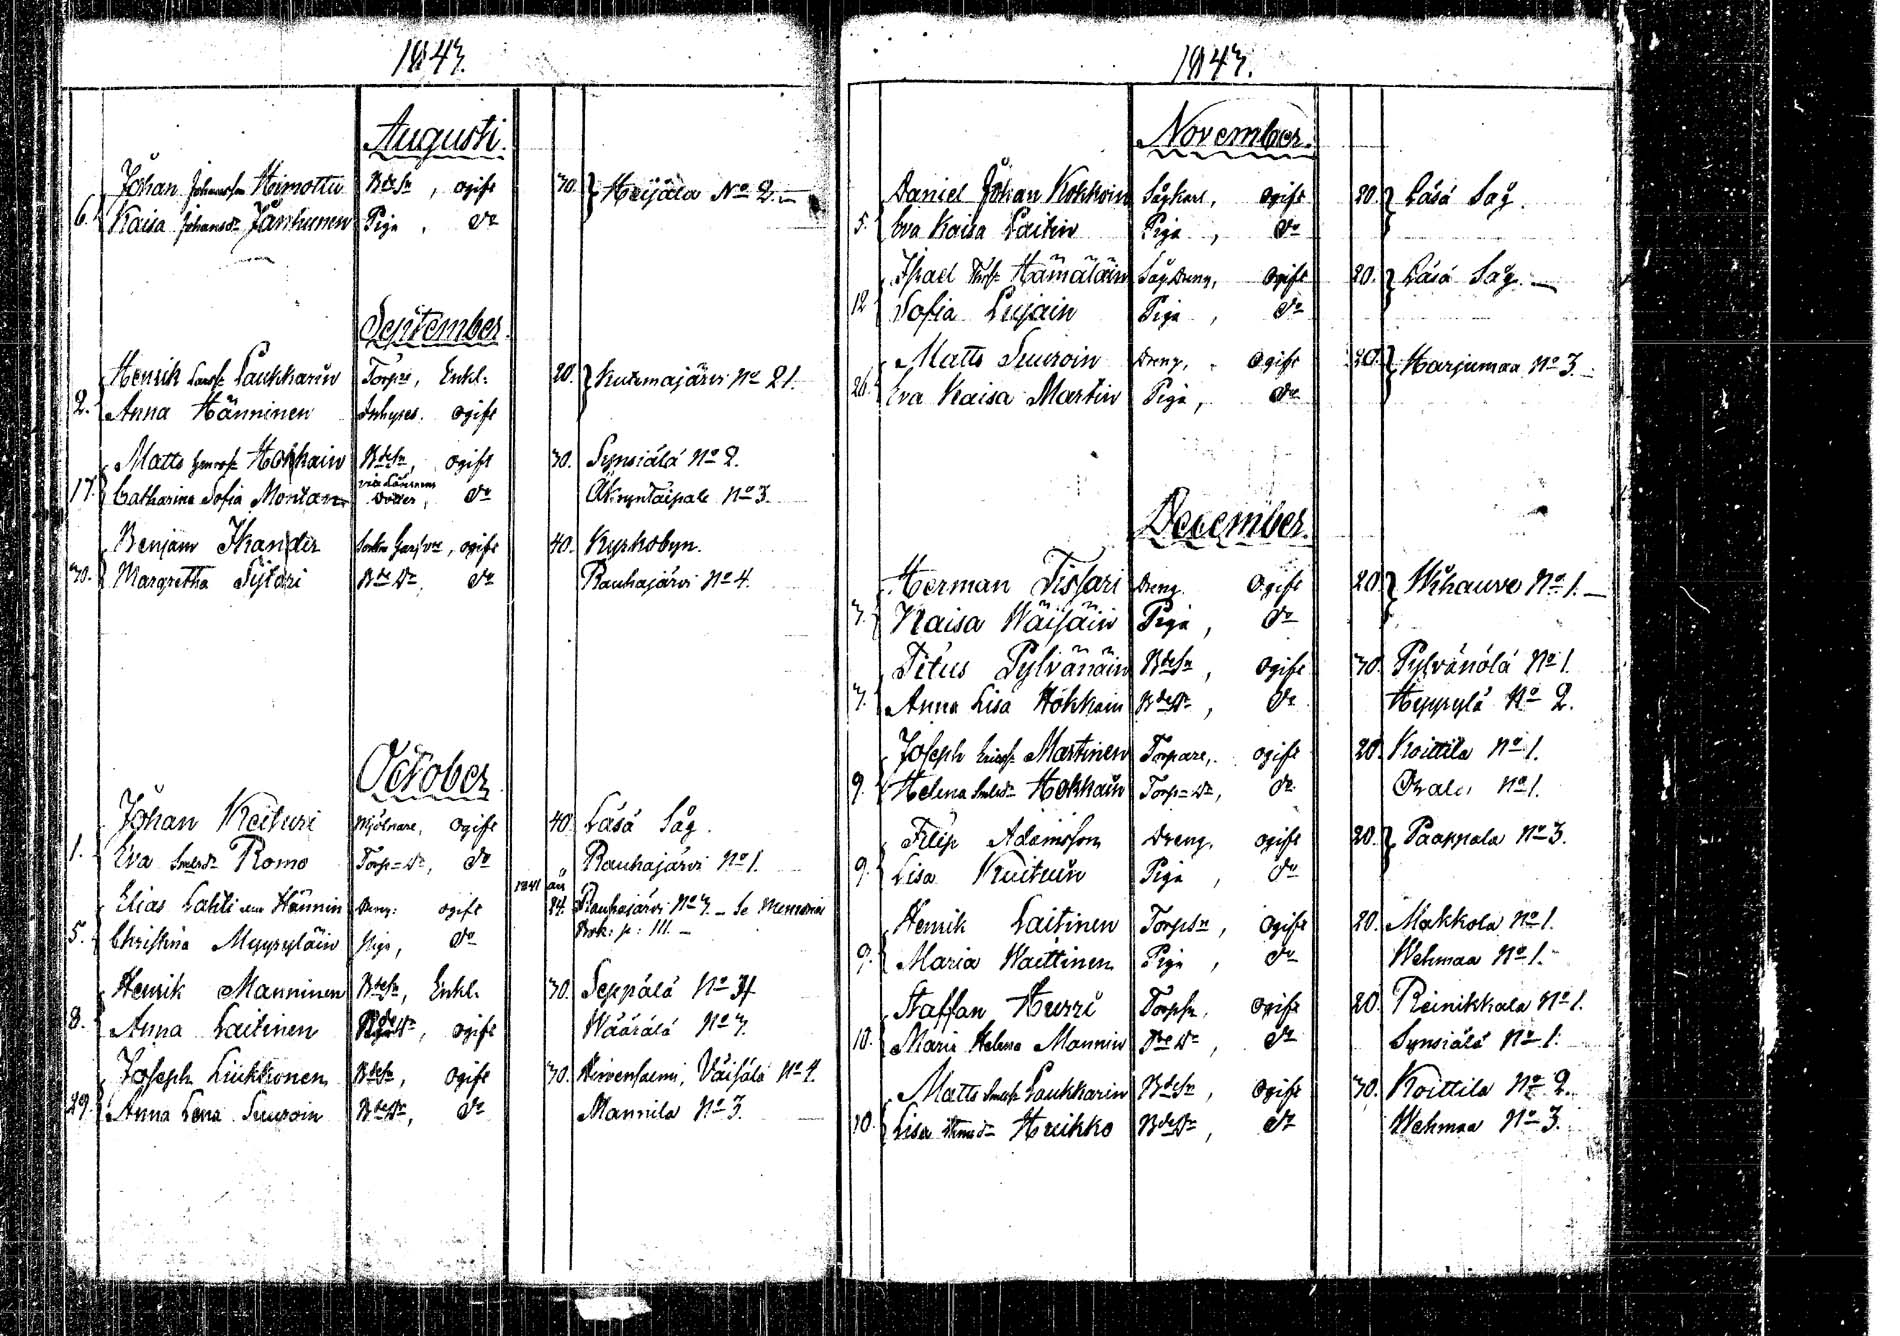 1843.
Augusti.
Johan Johansson Himottu Bdesn, ogift 30. Heijälä No 2.
6. Kaisa Johansdr Jäntunen Piga, do
September.
Henrik Larsn Laukkarin Torpre, Enkl. 20. Kutemajärvi No 21.
2. Anna Hänninen Inhyses. ogift
Matts Hokkain Bdesn, ogift 30. Synsiälä No 2.
17. Catharina Sofia Montan Dotter, do Äkryntaipale No 3.
Benjam Ikander ogift 40. Kyrkobyn.
30. Margretha Sytäri Bdedr. do Rauhajärvi No 4.
October
Johan Keituri Mjölnare, ogift 40. Läsä Såg.
1. Eva Romo Torp=dr, do Rauhajärvi No 1.
Elias Lahti Hännin Dreng: ogift 1841 24. Rauhajärvi No 3. Se Memorial
Bok: p: 111.
5. Christina Myyryläin Piga, do
Henrik Manninen Bdesn, Enkl. 30. Seppälä No 34
8. Anna Laitinen Bdedr, ogift Wäärälä No 3.
Joseph Liukkonen Bdesn, ogift 30. Hirvensalmi, Väisälä No 4.
29. Anna Lena Suuroin Bdedr, do Mannila No 3.
1843.
November.
Daniel Johan Kokkoin Sågkarl, ogift 20. Läsä Såg.
5. Eva Kaisa Laitin Piga, do
Israel Hämäläin Såg Dreng, ogift 20. Läsä Såg.
12 Sofia Piga, do
Matts Suuroin Dreng, ogift 20. Harjumaa No 3.
26. Eva Kaisa Martin Piga, do
December.
Herman Tissari Dreng. Ogift 20. Wihauvo No 1.
3. Kaisa Wäisäin Piga, do
Titus Pylvänäin Bdesn, ogift 30. Pylvänälä No 1.
3. Anna Lisa Hokkain Bdedr, do Hyyrylä No 2.
Joseph Ericss: Martinen Torpare, ogift 20. Koittila No 1.
9. Helena Hokkain Torp=dr, do No 1.
Filip Adamsson Dreng, ogift 20. Paappala No 3.
9. Lisa Kuituin Piga, do
Henrik Laitinen Torpsn, ogift 20. Makkola No 1.
9. Maria Waittinen Piga, do Wehmaa No 1.
Staffan Hurri Torpsn, ogift 20. Reinikkala No 1.
10. Maria Helena Mannin do, do Synsiälä No 1.
Matts Laukkarin Bdesn, ogift 30. Koittila No 2.
10. Lisa Heikko Bdedr, do Wehmaa No 3.